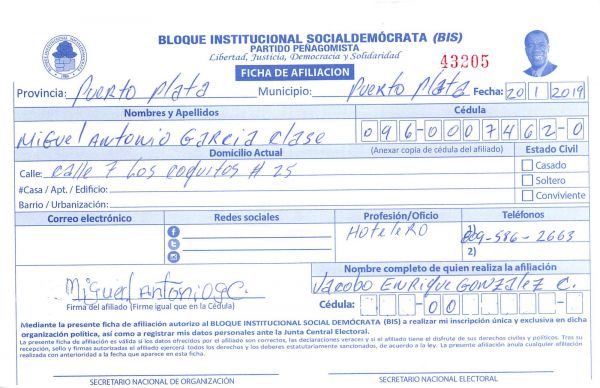 BLOQUE INSTITUCIONAL SOCIALDEMÓCRATA (BIS)
PARTIDO PEÑAGOMISTA
Libertad, Justicia, Democracia y Solidaridad
43205
FICHA DE AFILIACION
Provincia: Puerto Plata Municipio: Puerto Plata Fecha: 20 1 2019
Nombres y Apellidos Cédula
Miguel Antonio Garcia Clase 096-0007462-0
Domicilio Actual (Anexar copia de cédula del afiliado) Estado Civil
Calle: Calle 7 Los Coquitos # 25 Casado
#Casa / Apt. / Edificio: Soltero
Barrio / Urbanización: Conviviente
Correo electrónico Redes sociales Profesión/Oficio Teléfonos
Hotelero 1) 809-586-2663
2)
Nombre completo de quien realiza la afiliación
Miguel Antonio G C. Jacobo Enrique Gonzalez C.
Firma del afiliado (Firme igual que en la Cédula) Cédula: - 00 -
Mediante la presente ficha de afiliación autorizo al BLOQUE INSTITUCIONAL SOCIAL DEMÓCRATA (BIS) a realizar mi inscripción única y exclusiva en dicha
organización política, así como a registrar mis datos personales ante la Junta Central Electoral.
La presente ficha de afiliación es válida si los datos ofrecidos por el afiliado son correctos, las declaraciones veraces y si el afiliado tiene el disfrute de sus derechos civiles y políticos. Tras su
recepción, sello y firmas autorizadas el afiliado ejercerá todos los derechos y los deberes estatutariamente sancionados, de acuerdo a la ley. La presente afiliación anula cualquier afiliación
realizada con anterioridad a la fecha que aparece en esta ficha.
SECRETARIO NACIONAL DE ORGANIZACIÓN SECRETARIO NACIONAL ELECTORAL